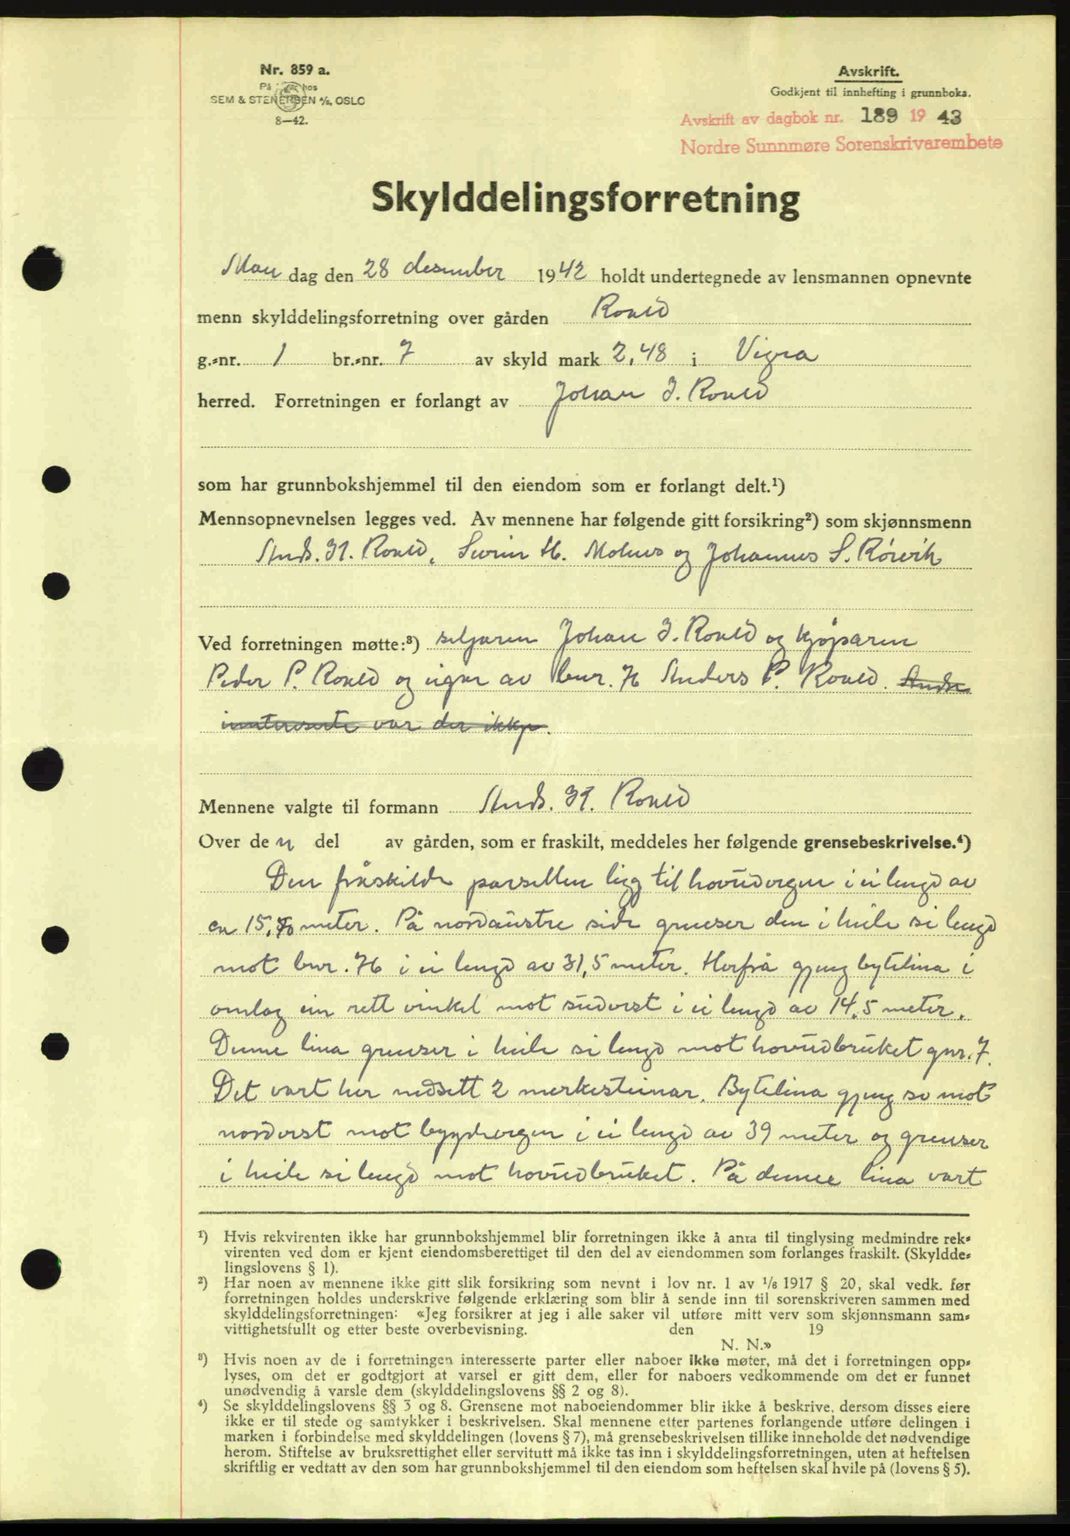 Nr. 859 a.
På hos
SEM & STENERSEN A/S, OSLO
8—42.
Avskrift.
Godkjent til innhefting i grunnboka.
Avskrift av dagbok nr. 189 19 43
Nordre Sunnmøre Sorenskrivarembete
Skylddelingsforretning
Man dag den 28 desember 1942 holdt undertegnede av lensmannen opnevnte
menn skylddelingsforretning over gården Roald
g.-nr. 1 br.-nr. 7 av skyld mark 2,48 i Vigra
herred. Forretningen er forlangt av Johan J. Roald
som har grunnbokshjemmel til den eiendom som er forlangt delt.¹)
Mennsopnevnelsen legges ved. Av mennene har følgende gitt forsikring²) som skjønnsmenn
Ands. K. Roald, Severin H. Molnes og Johannes S. Rörvik
Ved forretningen møtte:³) seljaren Johan J. Roald og kjøparen
Peder P. Roald og eigar av bnr. 76 Anders P. Roald. Andre
interesserte var der ikkje.
Mennene valgte til formann Ands. K. Roald
Over den del av gården, som er fraskilt, meddeles her følgende grensebeskrivelse.⁴)
Den fråskilde parsellen ligg til hovudvegen i ei lengd av
ca 15,70 meter. På nordaustre side grenser den i heile si lengd
mot bnr. 76 i ei lengd av 31,5 meter. Herfrå gjeng bytelina i
omlag ein rett vinkel mot sudvest i ei lengd av 14,5 meter.
Denne lina grenser i heile si lengd mot hovudbruket gnr. 7.
Det vart her nedsett 2 merkesteinar. Bytelina gjeng so mot
nordvest mot bygdevegen i ei lengd av 39 meter og grenser
i heile si lengd mot hovudbruket. På denne lina vart
¹) Hvis rekvirenten ikke har grunnbokshjemmel blir forretningen ikke å anta til tinglysing medmindre rek-
virenten ved dom er kjent eiendomsberettiget til den del av eiendommen som forlanges fraskilt. (Skyldde-
lingslovens § 1).
²) Har noen av mennene ikke gitt slik forsikring som nevnt i lov nr. 1 av 1/6 1917 § 20, skal vedk. før
forretningen holdes underskrive følgende erklæring som blir å sende inn til sorenskriveren sammen med
skylddelingsforretningen: «Jeg forsikrer at jeg i alle saker vil utføre mitt verv som skjønnsmann sam-
vittighetsfullt og etter beste overbevisning. den 19
N. N.»
³) Hvis noen av de i forretningen interesserte parter eller naboer ikke møter, må det i forretningen opp-
lyses, om det er godtgjort at varsel er gitt dem, eller for naboers vedkommende om det er funnet
unødvendig å varsle dem (skylddelingslovens §§ 2 og 8).
⁴) Se skylddelingslovens §§ 3 og 8. Grensene mot naboeiendommer blir ikke å beskrive, dersom disses eiere
ikke er til stede og samtykker i beskrivelsen. Skal mennene etter partenes forlangende utføre delingen i
marken i forbindelse med skylddelingen (lovens § 7), må grensebeskrivelsen tillike inneholde det nødvendige
herom. Stiftelse av bruksrettighet eller servitutt må ikke tas inn i skylddelingsforretningen, uten at heftelsen
skriftlig er vedtatt av den som har grunnbokshjemmel til den eiendom som heftelsen skal hvile på (lovens § 5).